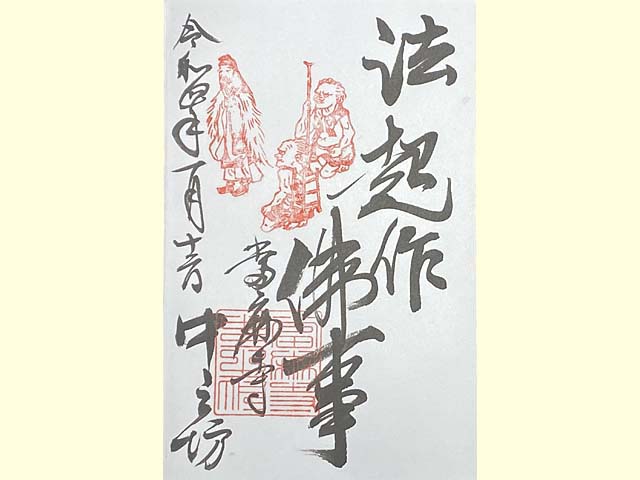 法起作
佛事
當麻寺
令和四年一月十一日
中之坊